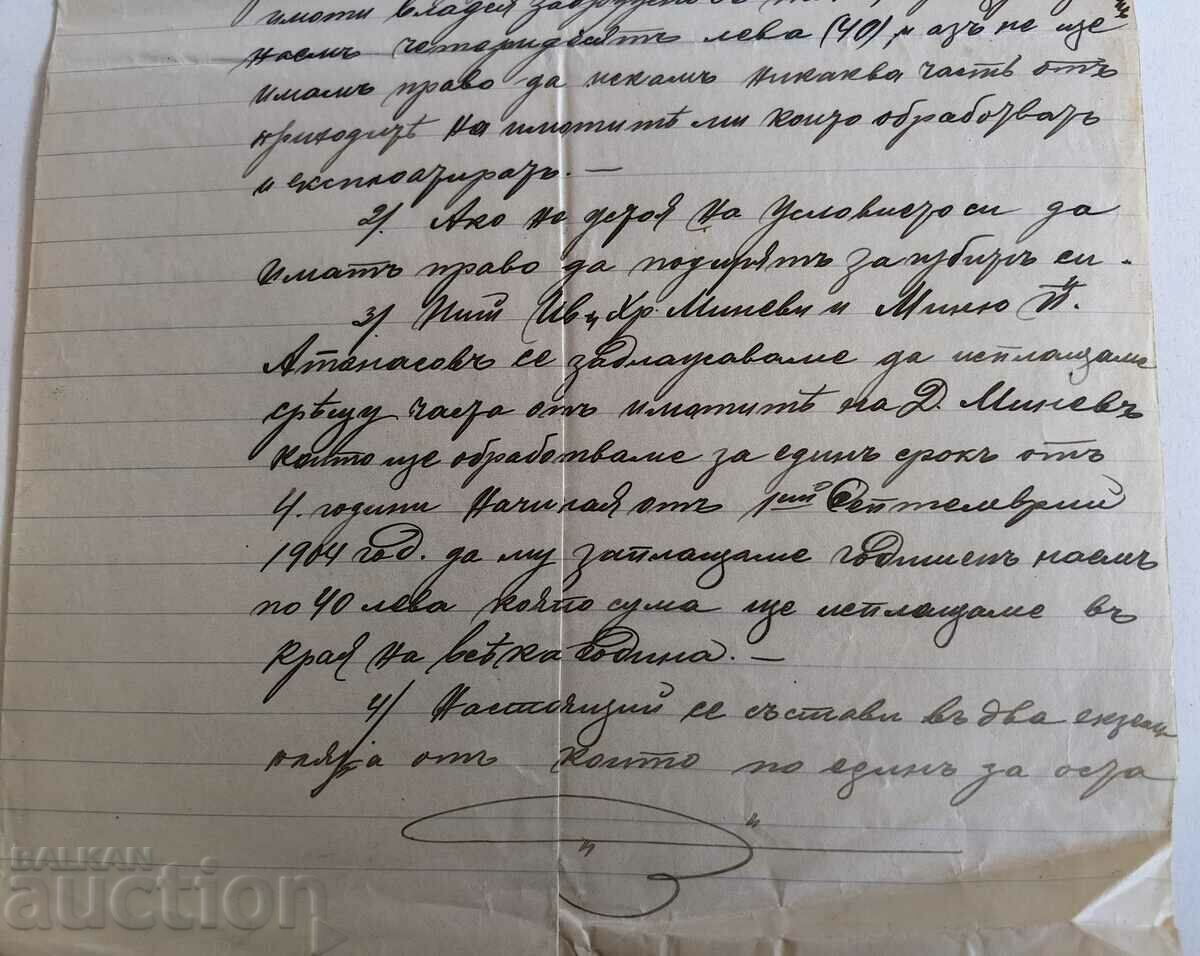 имоти владея
наемъ четиридесятъ лева (40), и азъ не ще
имамъ право да искамъ никаква часть отъ
приходитѣ на имотитѣ ми които обработватъ
и експлоатиратъ. —
2/. Ако не устоя на условието си да
иматъ право да подирятъ загубитѣ си.
3/ Ний Ив. и Хр. Миневи и Миню Й.
Атанасовъ се задлажаваме да исплащаме
срѣщу часта отъ имотитѣ на Д. Миневъ
които ще обработваме за единъ срокъ отъ
4. години начиная отъ 1ий Септемврий
1904 год. да му заплащаме годишенъ наемъ
по 40 лева която сума ще исплащаме въ
края на всѣка година. —
4/ Настоящий се състави въ два екзем
пляра отъ които по единъ за
BALKAN
auction